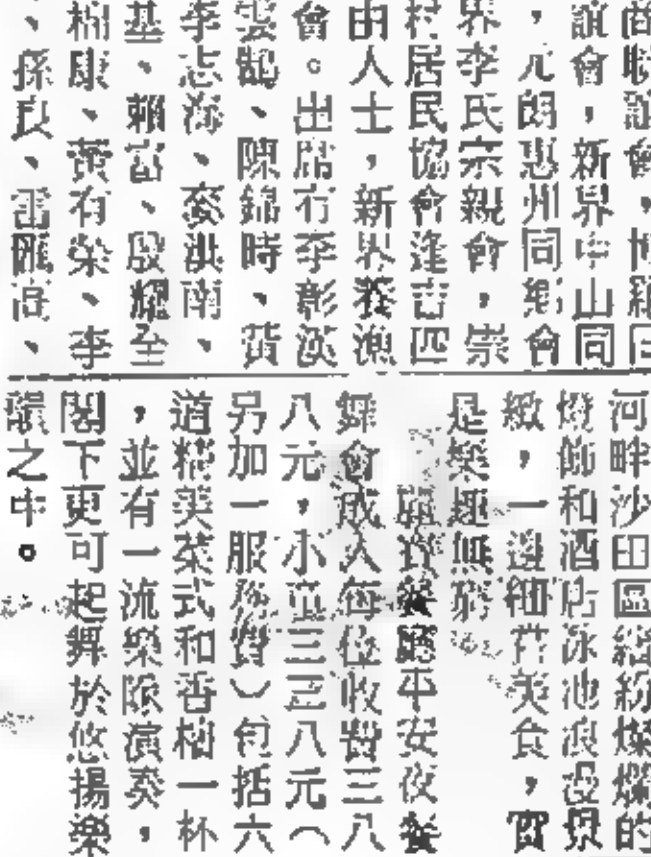 商聯誼會，博羅同
誼會，新界中山同
，元朗惠州同鄉會
界李氏宗親會，崇
村居民協會逢吉四
由人士，新界養漁
會。出席有李彰漢
雲鶴、陳錦時、黃
李志海、麥洪南、
基、賴富、殷耀全
棉康、黃有榮、李
、孫良、雷匯高、
河畔沙田區繽紛燦爛的
燈飾和酒店泳池浪漫景
緻，一邊細嘗美食，實
是樂趣無窮
餐廳平安夜餐
舞會成人每位收費三八
八元，小童三三八元（
另加一服務費）包括六
道精美菜式和香檳一杯
，並有一流樂隊演奏，
閣下更可起舞於悠揚樂
韻之中。